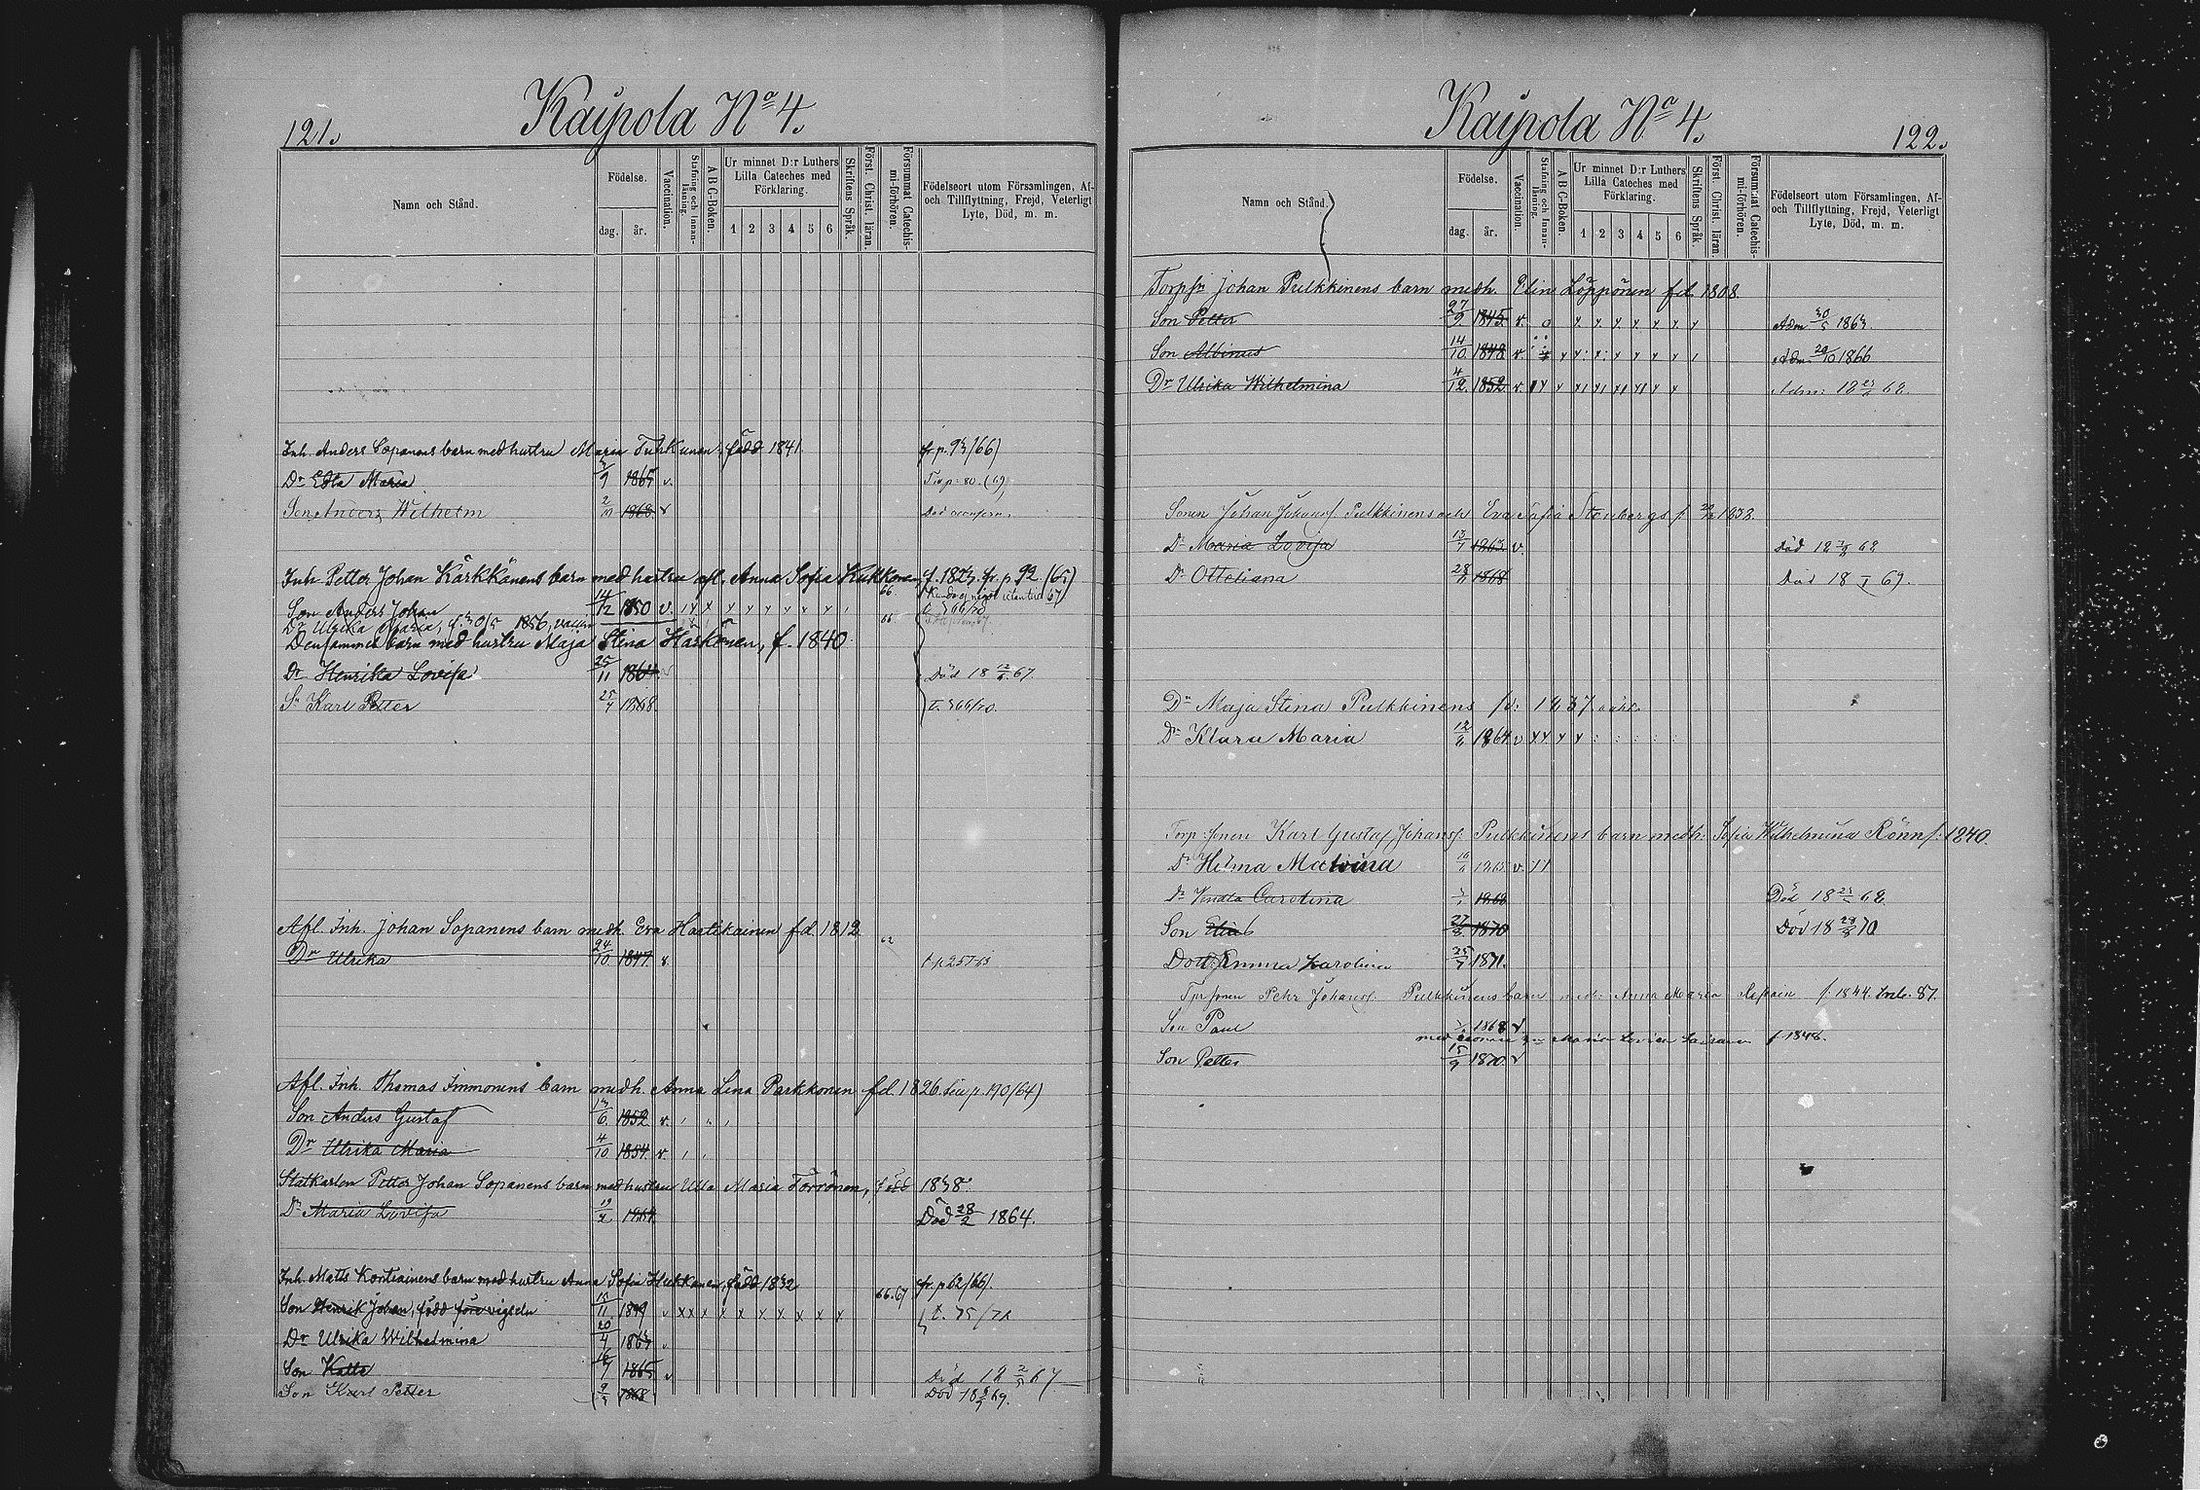 121.
Kaipola No 4.
Namn och Stånd.
Födelse.
dag.
år.
Vaccination.
Stafning och Innanläsning.
A B C-Boken.
Ur minnet D:r Luthers Lilla Cateches med Förklaring.
1 2 3 4 5 6
Skriftens Språk.
Först. Christ. läran.
Försummat Catechismi-förhören.
Födelseort utom Församlingen, Af- och Tillflyttning, Frejd, Veterligt Lyte, Död, m. m.
Inh. Anders Sopanens barn med hustru Maria Tuhkunen, född 1841. fr p. 93/66)
Dr Edla Maria 9 1865 v.
Son Anders Wilhelm 1868 v
Inh. Petter Johan Kärkkänens barn med hustru afl. Anna Sofia Kukkonen, f. 1823. fr. p 92. (65)
Son Anders Johan 14/12 1850 v. 66
Dr Ulrika Maria, f. 1856, vaccin 66
Densammes barn med hustru Maja Stina Harkönen, f. 1840.
Dr Henrika Lovisa 25/11 1864 Död 18 67
Sn Karl Petter 25/7 1868 t. 366/70.
Afl. Inh. Johan Sopanens barn medh. Eva Hartikainen fd. 1812 62
Dr Ulrika 24/10 1847. v.
Afl. Inh. Thomas Immonens barn medh. Anna Lena Parkkonen fd. 1826. p. 190/64)
Son Anders Gustaf 13/6. 1852. v.
Dr Ulrika Maria 4/10 1854. v.
Statkarlen Petter Johan Sopanens barn med hustru Ulla Maria Törrönen, född 1838.
Dr Maria Lovisa 19/2 1864 Död 28/2 1864.
Inh. Matts Kontiainens barn med hustru Anna Sofia Hukkanen, född 1832 fr. p. 62/66)
Son Henrik Johan, född före vigseln 15/11 1849 v 66.67 t. 75/72
Dr Ulrika Wilhelmina 20/4 1863 v
Son Kalle 16/7 1865 v Död 18 67
Son Karl Petter 1868 Död 18 69.
Kaipola No 4.
122.
Namn och Stånd.
Födelse.
dag.
år.
Vaccination.
Stafning och Innanläsning.
A B C-Boken.
Ur minnet D:r Luthers Lilla Cateches med Förklaring.
1 2 3 4 5 6
Skriftens Språk.
Först. Christ. läran.
Försummat Catechismi-förhören.
Födelseort utom Församlingen, Af- och Tillflyttning, Frejd, Veterligt Lyte, Död, m. m.
Johan Pulkkinens barn medh. Elin Löppönen fd. 1808.
Son Petter 27/9. 1845. v. Adm 30/5 1863.
Son Albinus 14/10. 1848. v. Adm 1866
Dr Ulrika Wilhelmina 4/12. 1852. v. Adm: 18 68.
Sonen Johan Johansf. Pulkkinens och Eva Sofia Stenbergs f. 1838.
Dr Maria Lovisa 1863 v. Död 18 68
Dr Otteliana 28 1868 Död 18 69.
Dr Maja Stina Pulkkinens fd: 1837
Dr Klara Maria 12 1864 v
Torp. sonen Karl Gustaf Johansf. Pulkkinens barn medh: Sofia Wilhelmina Rönn f: 1840.
Dr Helma Malvina v.
Dr Vendla Carolina 1868 Död 18 68.
Son Elias 27/8 1870 Död 18 29/8 70
Dott. Emma Karolina 25/7 1871.
sonen Pehr Johansf. Pulkkinens barn med: Anna Maria f. 1844.
Son Paul 1868 v
Maria Lovisa f 1848.
Son Petter 15/9 1870. v